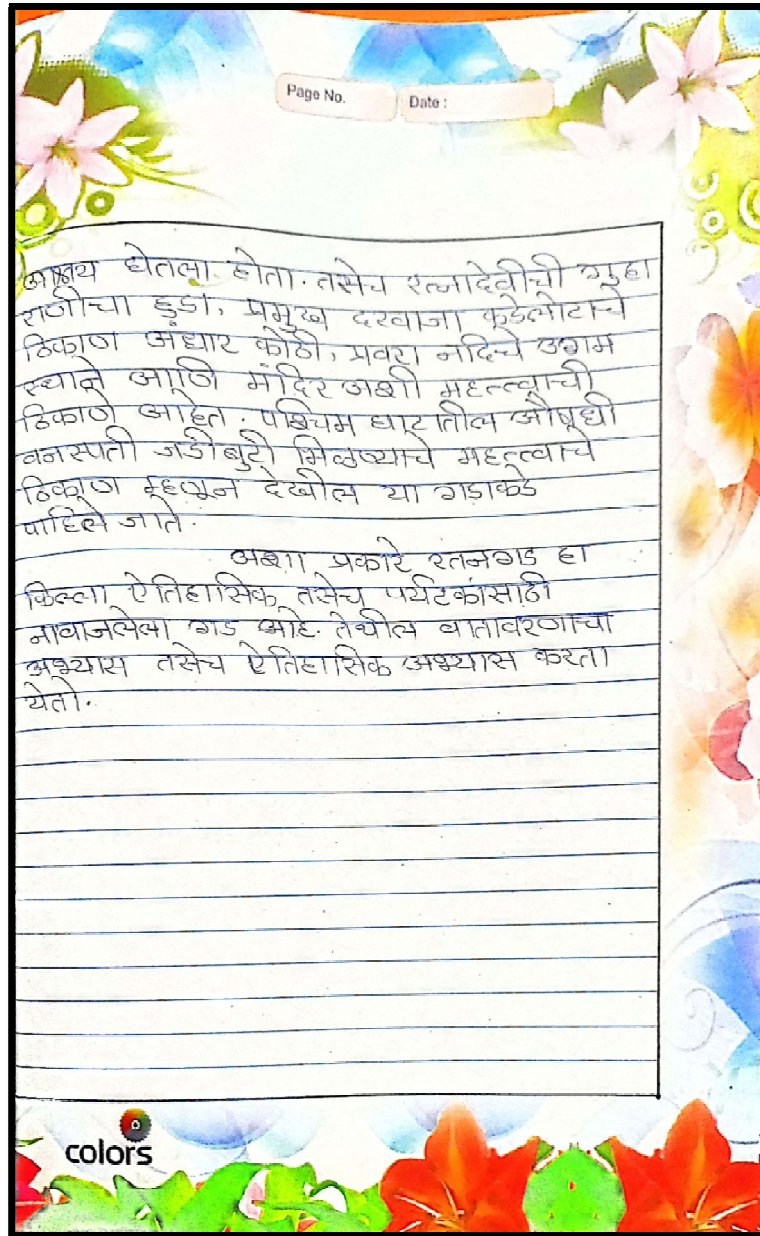 Page No.
Date :
आश्रय घेतला. होता. तसेच रत्नादेवीची गुहा
राणीचा हुडा, प्रमुख दरवाजा कडेलोटाचे
ठिकाण अंधार कोठी, प्रवरा नदिचे उगम
स्थाने आणि मंदिर अशी महत्त्वाची
ठिकाणे आहेत. पश्चिम घाटातील औषधी
वनस्पती जडीबुटी मिळण्याचे महत्त्वाचे
ठिकाण म्हणून देखील या गडाकडे
पाहिले जाते.
अशा प्रकारे रतनगड हा
किल्ला ऐतिहासिक तसेच पर्यटकांसाठी
नावाजलेला गड आहे. तेथील वातावरणाचा
अभ्यास तसेच ऐतिहासिक अभ्यास करता
येतो.
colors